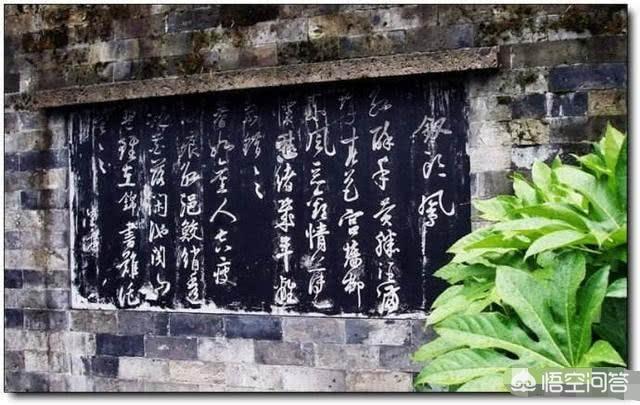 釵頭鳳
紅酥手黃縢酒滿
城春色宮牆柳
東風惡歡情薄一
懷愁緒幾年離
索錯々
春如舊人空瘦
淚痕紅浥鮫綃透
桃花落閒池閣山
盟雖在錦書難托
莫々
悟空问答